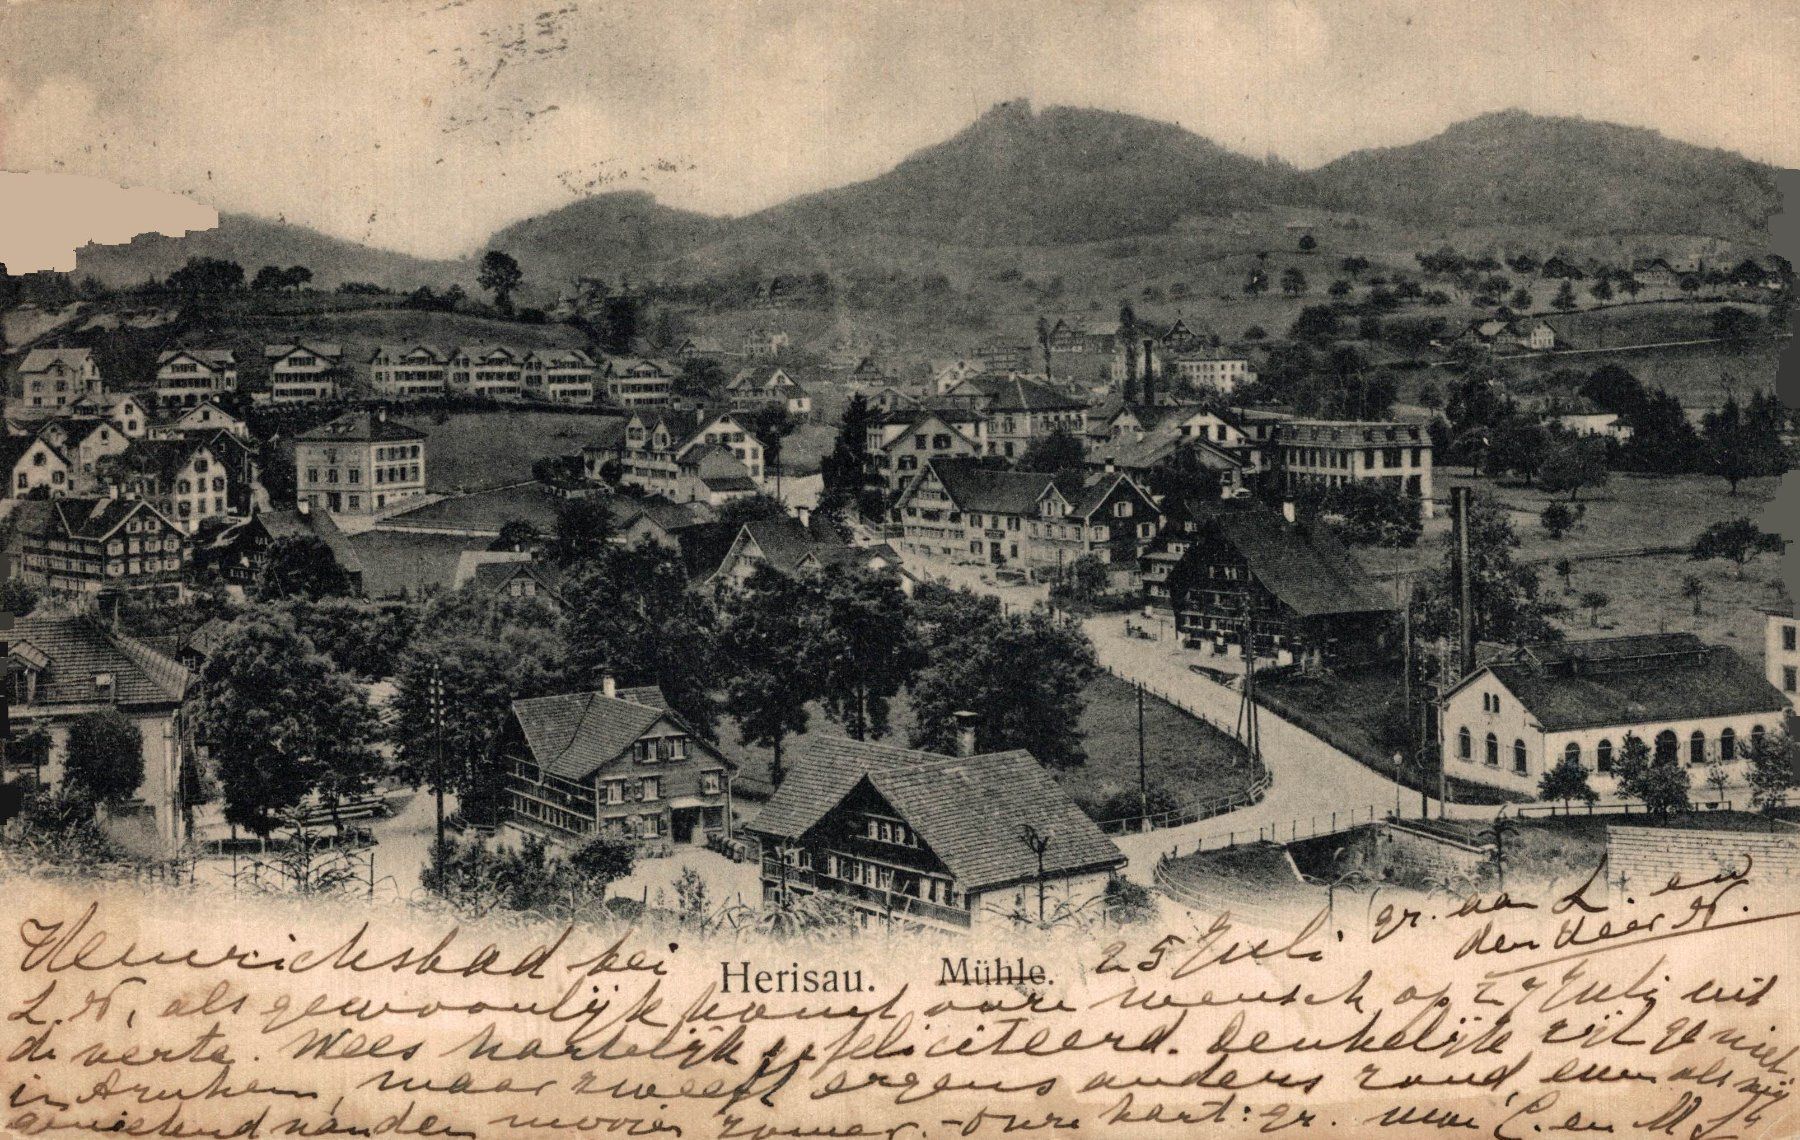 Henrichsbad bei Herisau. Mühle. 25 Juli gr. aan L. en
den Heer N.
L. N, als gewoonlijk komt onze wensch op 27 Juli uit
de verte. Wees hartelijk gefeliciteerd. Denkelijk zijt ge niet
in Arnhem, maar zweeft ergens anders rond, even als wij
genietend van den mooien zomer. - onze hart: gr. C. en M